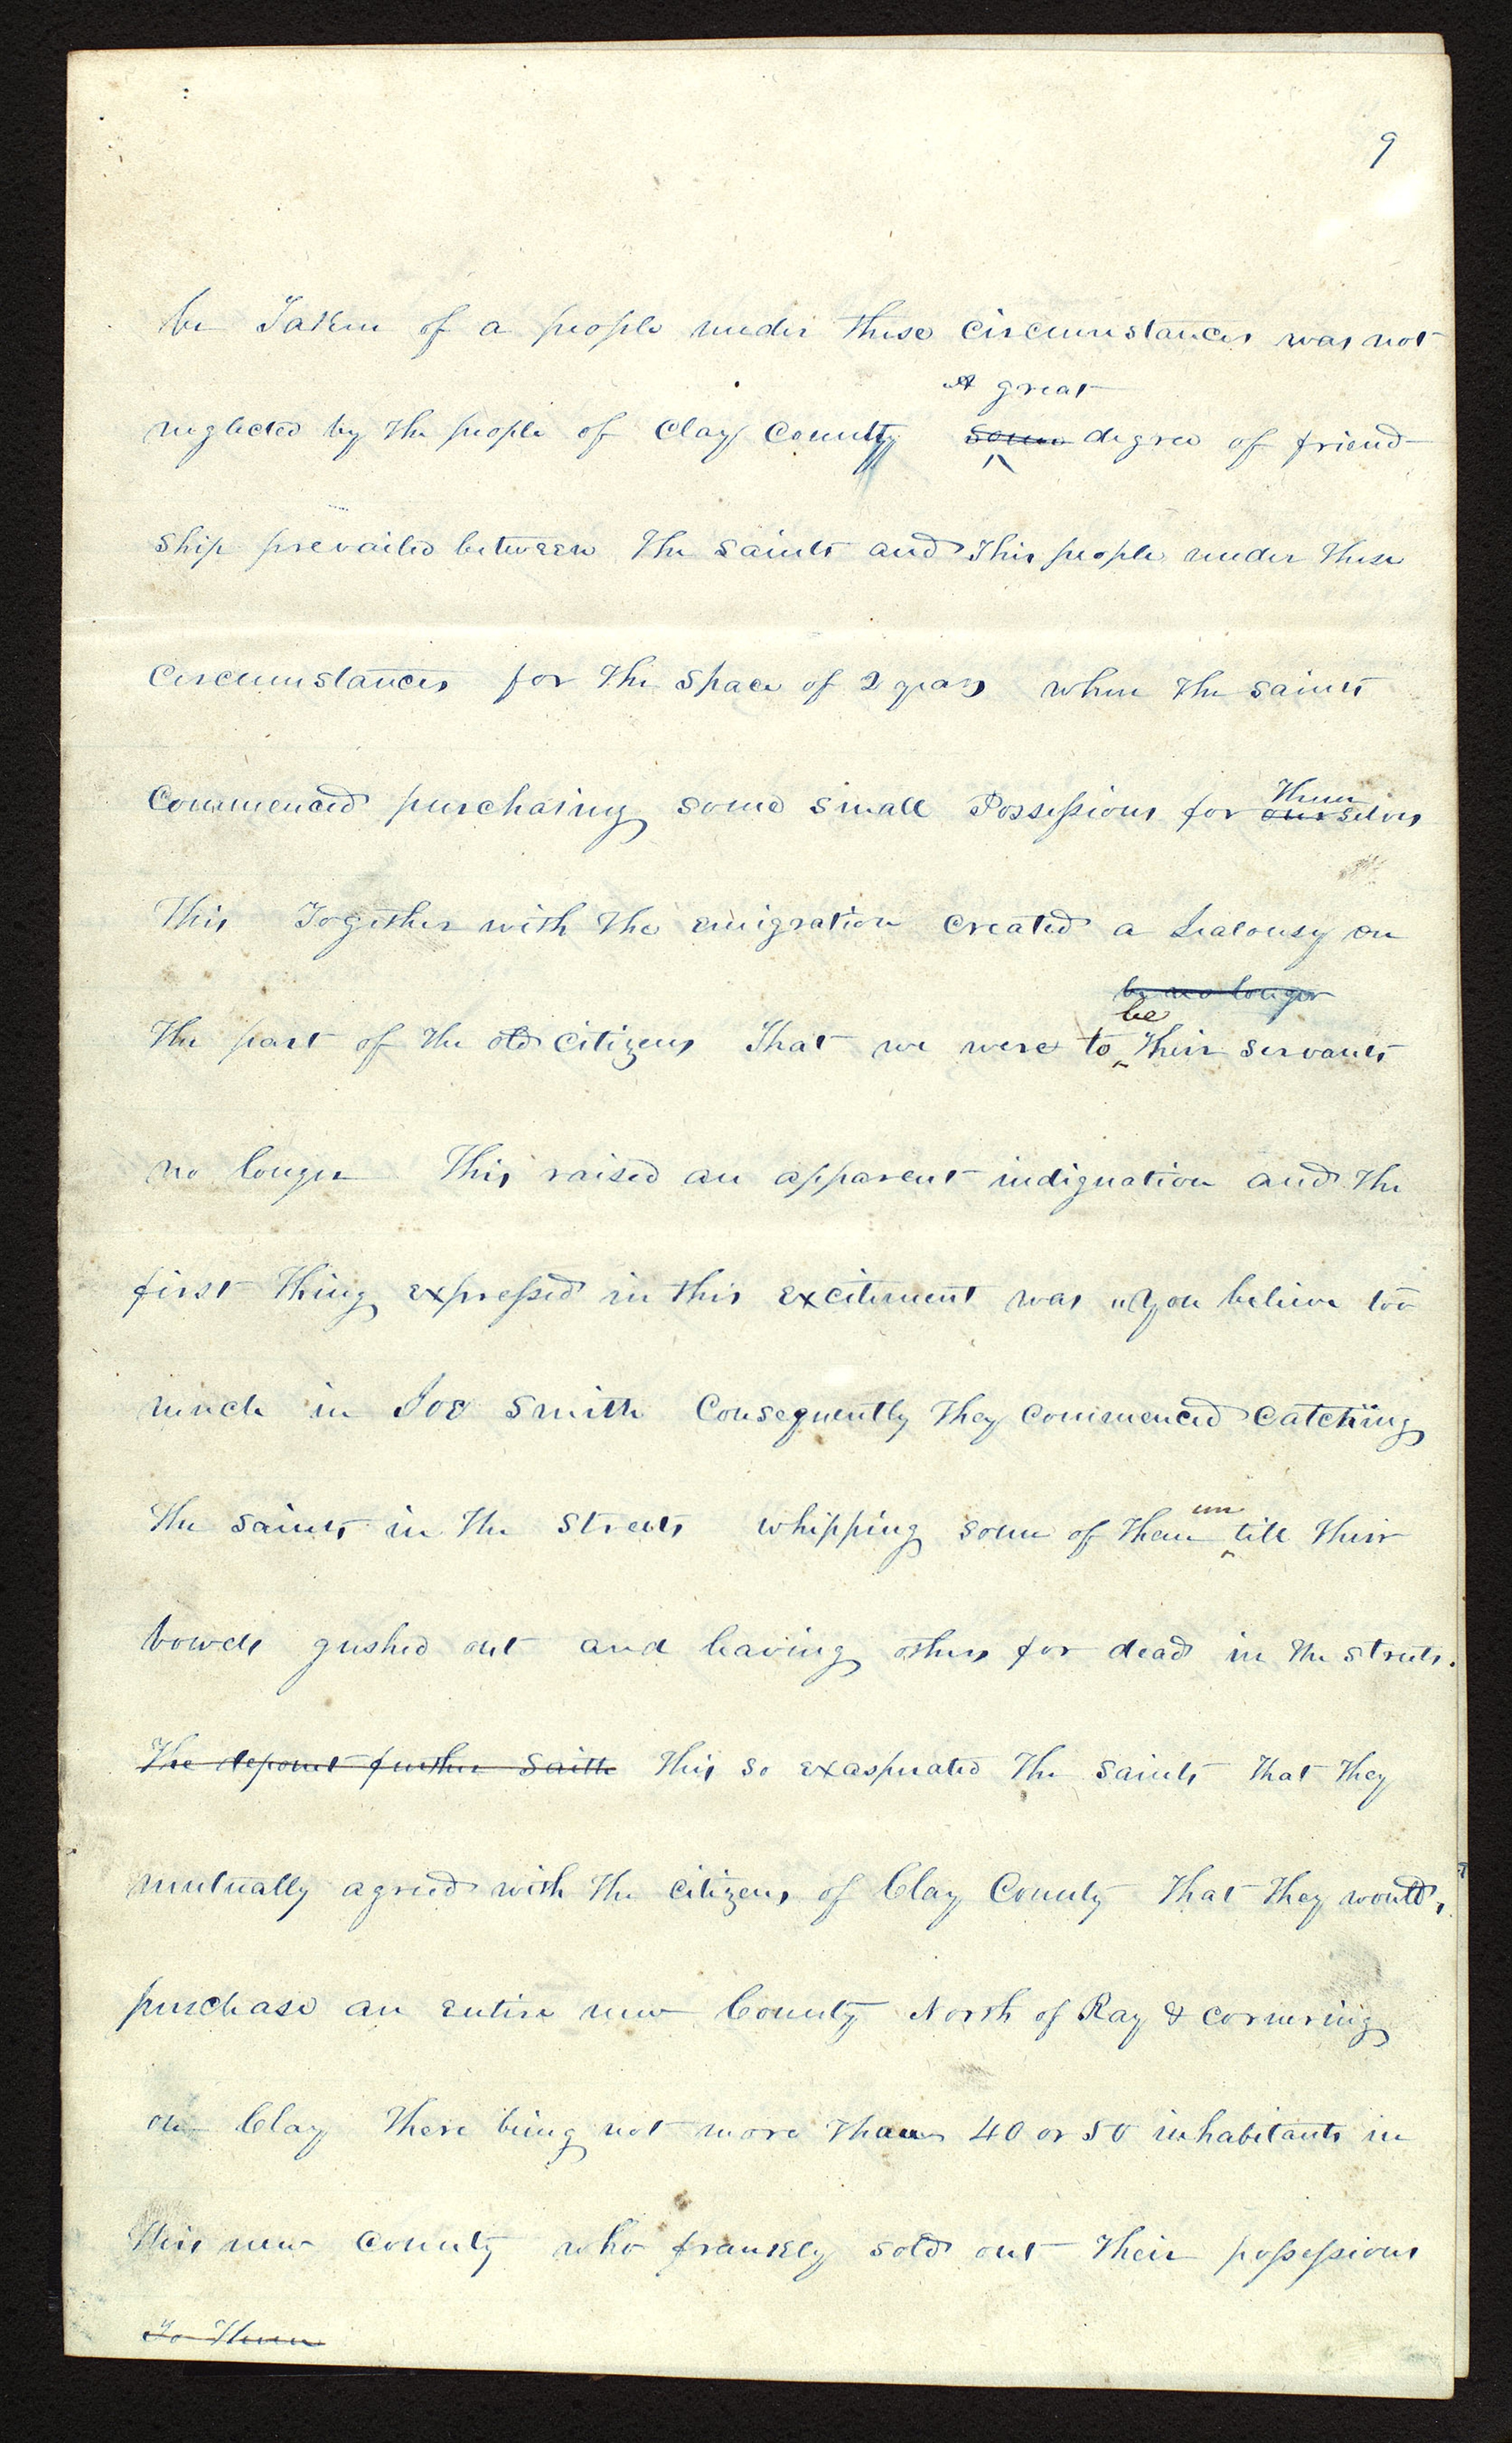 9
be Taken of a people under these circumstances was not
A great
neglected by the people of Clay County some degree of friend
ship prevailed between the saints and this people under these
circumstances for the space of 2 years when the saints
Them
Commenced purchasing some small Possessions for ourselves
This Together with the emigration created a Jealousy on
be no longer
be
the part of the old citizens That we were to their servants
no longer This raised an apparent indignation and the
first thing expressed in this excitement was "you believe too
much in Joe Smith Consequently they commenced catching
un
the saints in the streets whipping some of them till their
bowels gushed out and leaving others for dead in the streets.
The deponet further saith this so exasperated the saints that they
mutually agreed with the citizens of Clay County that they would,
purchase an entire new County North of Ray & cornering
on Clay There being not more than 40 or 50 inhabitants in
this new County who frankly sold out their possessions
To Them